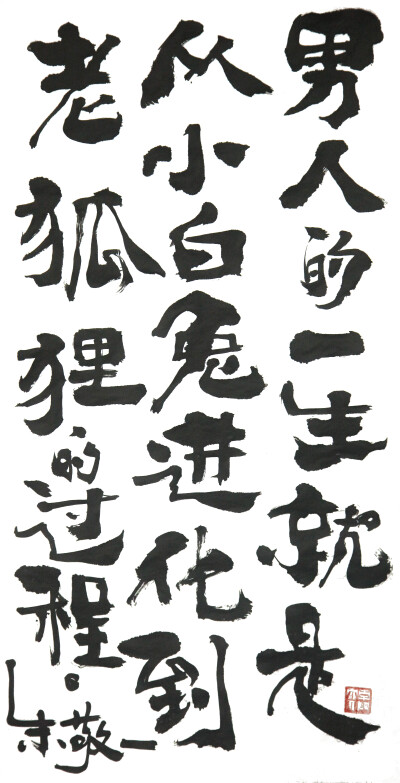 男人的一生就是
从小白兔进化到
老狐狸的过程。